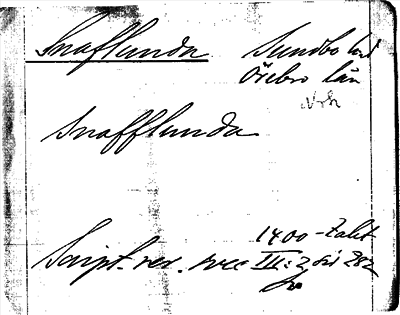 Snaflunda Sundbo hd
Örebro län
Nrk
Snafflunda
1400-talet
Script. rer. svec III: 2 sid 282